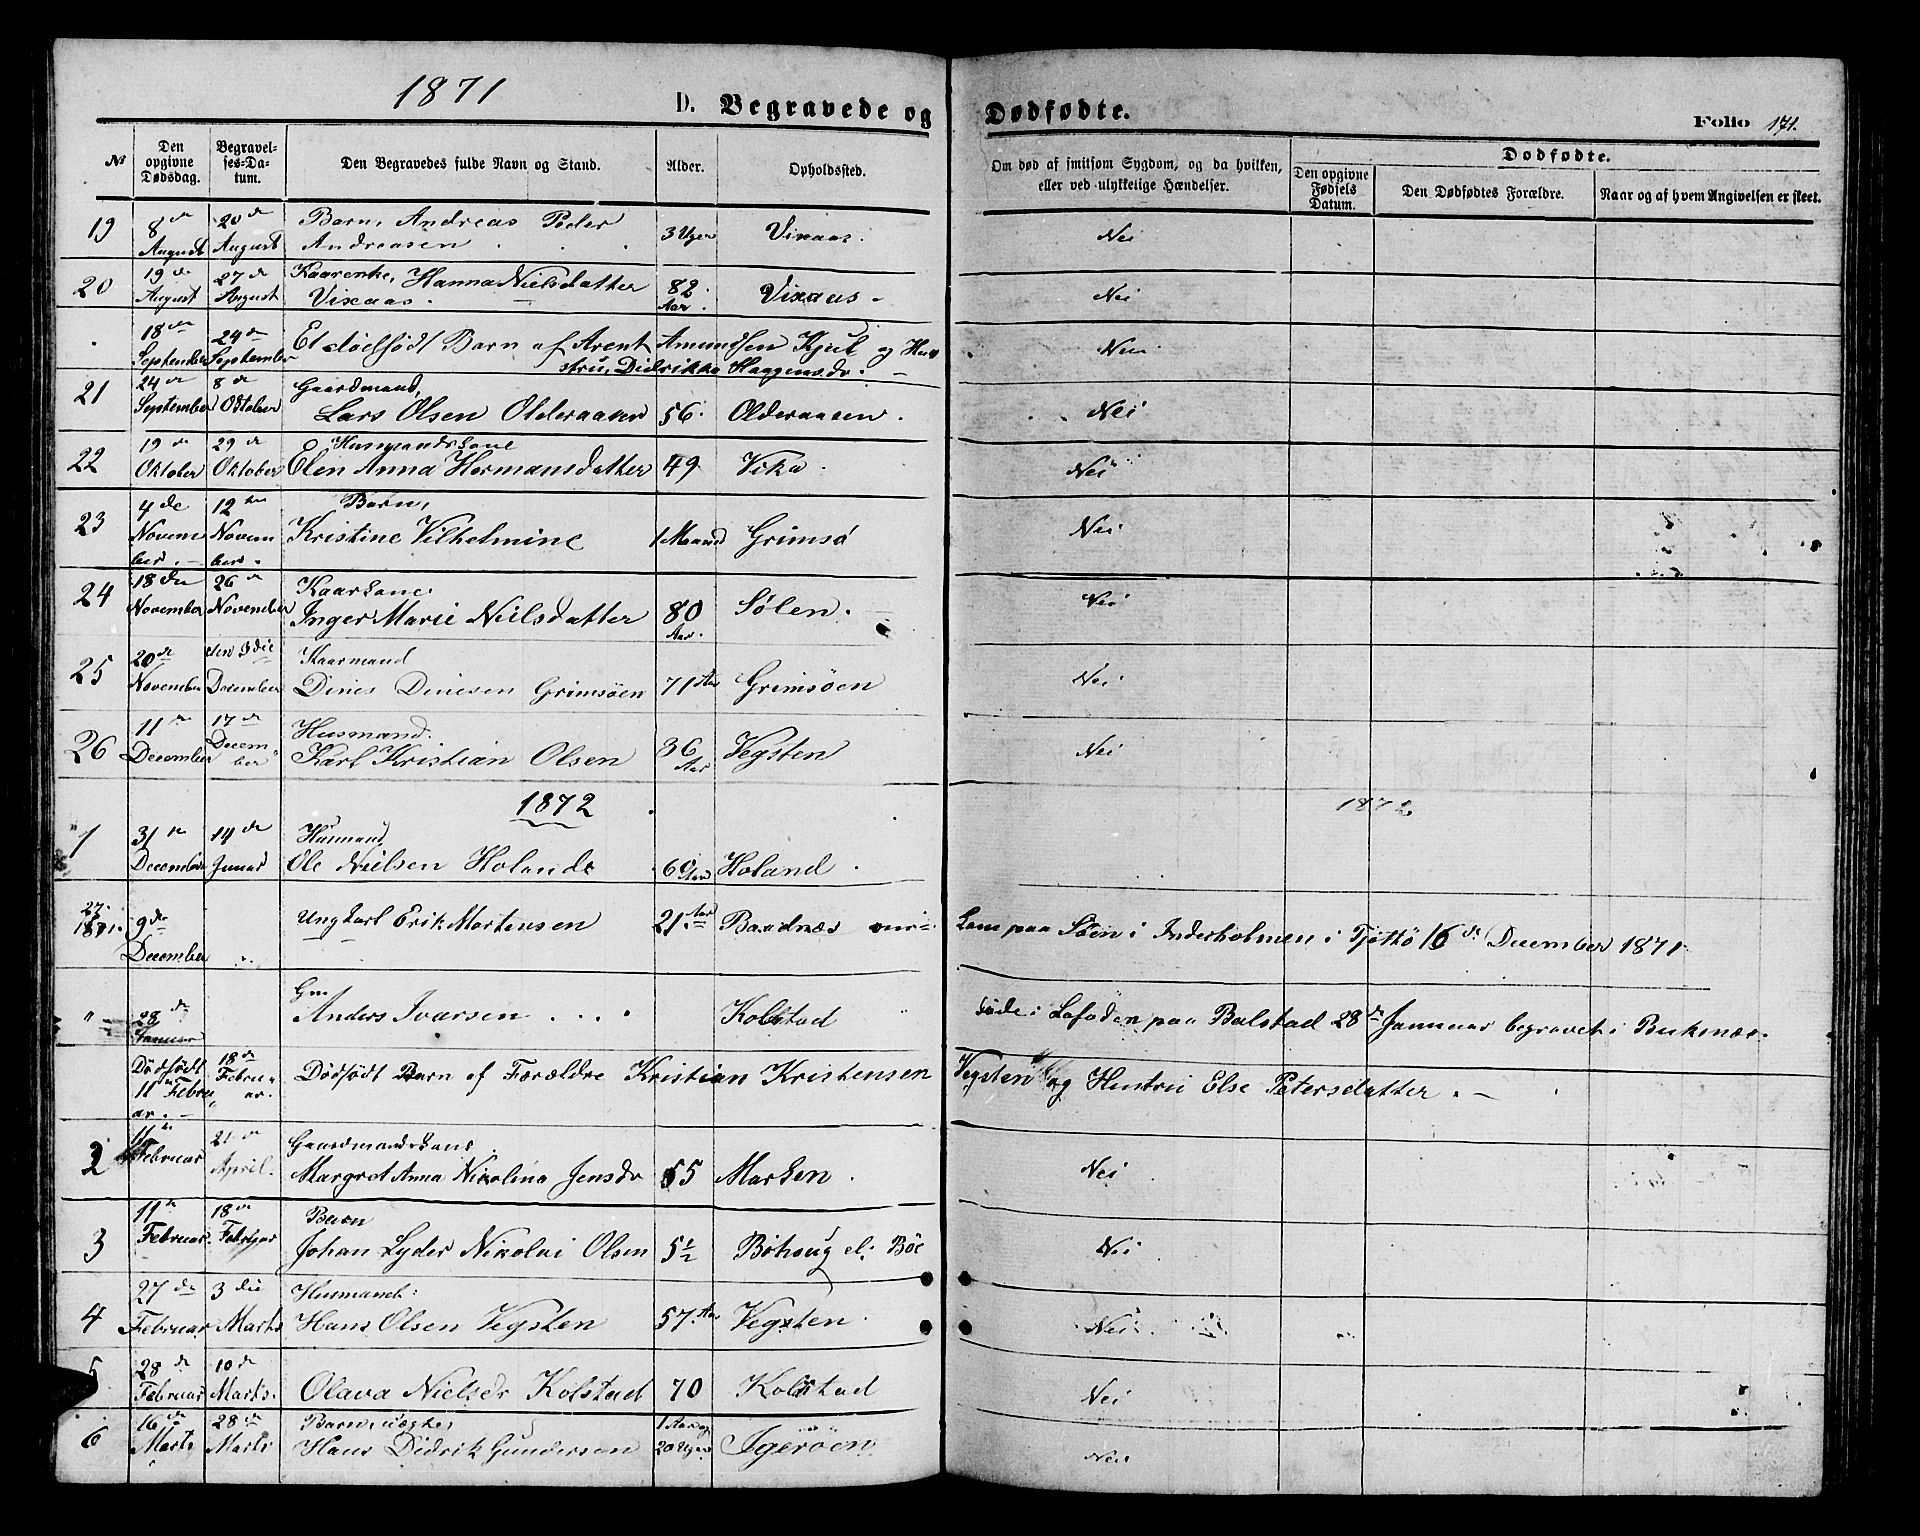 1871
D. Begravede og Dødfødte.
Folio 171.
№ Den opgivne Dødsdag. Begravelses-Datum. Den Begravedes fulde Navn og Stand. Alder. Opholdssted. Om død af smitsom Sygdom, og da hvilken, eller ved ulykkelige Hændelser. Dødfødte. Den opgivne Fødsels Datum. Den Dødfødtes Forældre. Naar og af hvem Angivelsen er skeet.
19 8de August 20de August Barn, Andreas Peder Andreasen 3 Uger Vixaas. Nei
20 19de August 27de August Hanna Nielsdatter Vixaas. 82 Aar. Vixaas. Nei
18de September 24de September Et dødfødt Barn af Arent Amundsen Kjul og Hustru, Didrikke Haagensdr. Nei
21 24de September 8de Oktober Gaardmand, Lars Olsen Olderaasen 56. Olderaasen. Nei
22 19de Oktober 29de Oktober Husmandskone Elen Anna Hermansdatter 49 Vika. Nei
23 4de November 12te November Barn, Kristine Vilhelmine 1 Maaned Grimsø Nei
24 18de November 26de November Kaarkone Inger Marie Nielsdatter 80 Aar. Sølen. Nei
25 20de November den 3die December Kaarmand Dines Dinesen Grimsøen 71 Aar Grimsøen Nei
26 11te December 17de December Husmand. Karl Kristian Olsen 36 Aar Vegsten Nei
1872
1872
1 31te December 14de Januar Husmand Ole Nielsen Holand 60 Aar Holand.
27. 1871. 9de December Ungkarl Erik Mortensen 21 Aar Baadnæs om- kom paa Søen i Inderholmen i Tjøttø 16de December 1871
" 28de Januar Gm. Anders Ivarsen Kolstad døde i Lofoden paa Balstad 28de Januar begravet i Buksnæs.
Dødfødt 11te Februar. 18de Februar. Dødfødt Barn af Forældre Kristian Kristensen Vegsten og Hustru Else Petersdatter.
2 11te Februar 21de April. Gaardmandskone. Margret Anna Nikolina Jensdr 55 Marken. Nei
3 11te Februar. 18de Februar Barn Johan Lyder Nikolai Olsen 5½ Bøhaug el. Bøe Nei
4 27de Februar 3die Marts Husmand: Hans Olsen Vegsten 57. Aar Vegsten. Nei
5 28de Februar 10de Marts. Olava Nielsdr Kolstad 70 Kolstad Nei
6 16de Marts 28de Marts Barn, uægte, Hans Didrik Gundersen 1 Aar og 20 Uger Igerøen Nei